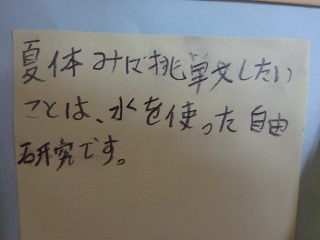 夏休みに挑戦したい
ことは、水を使った自由
研究です。